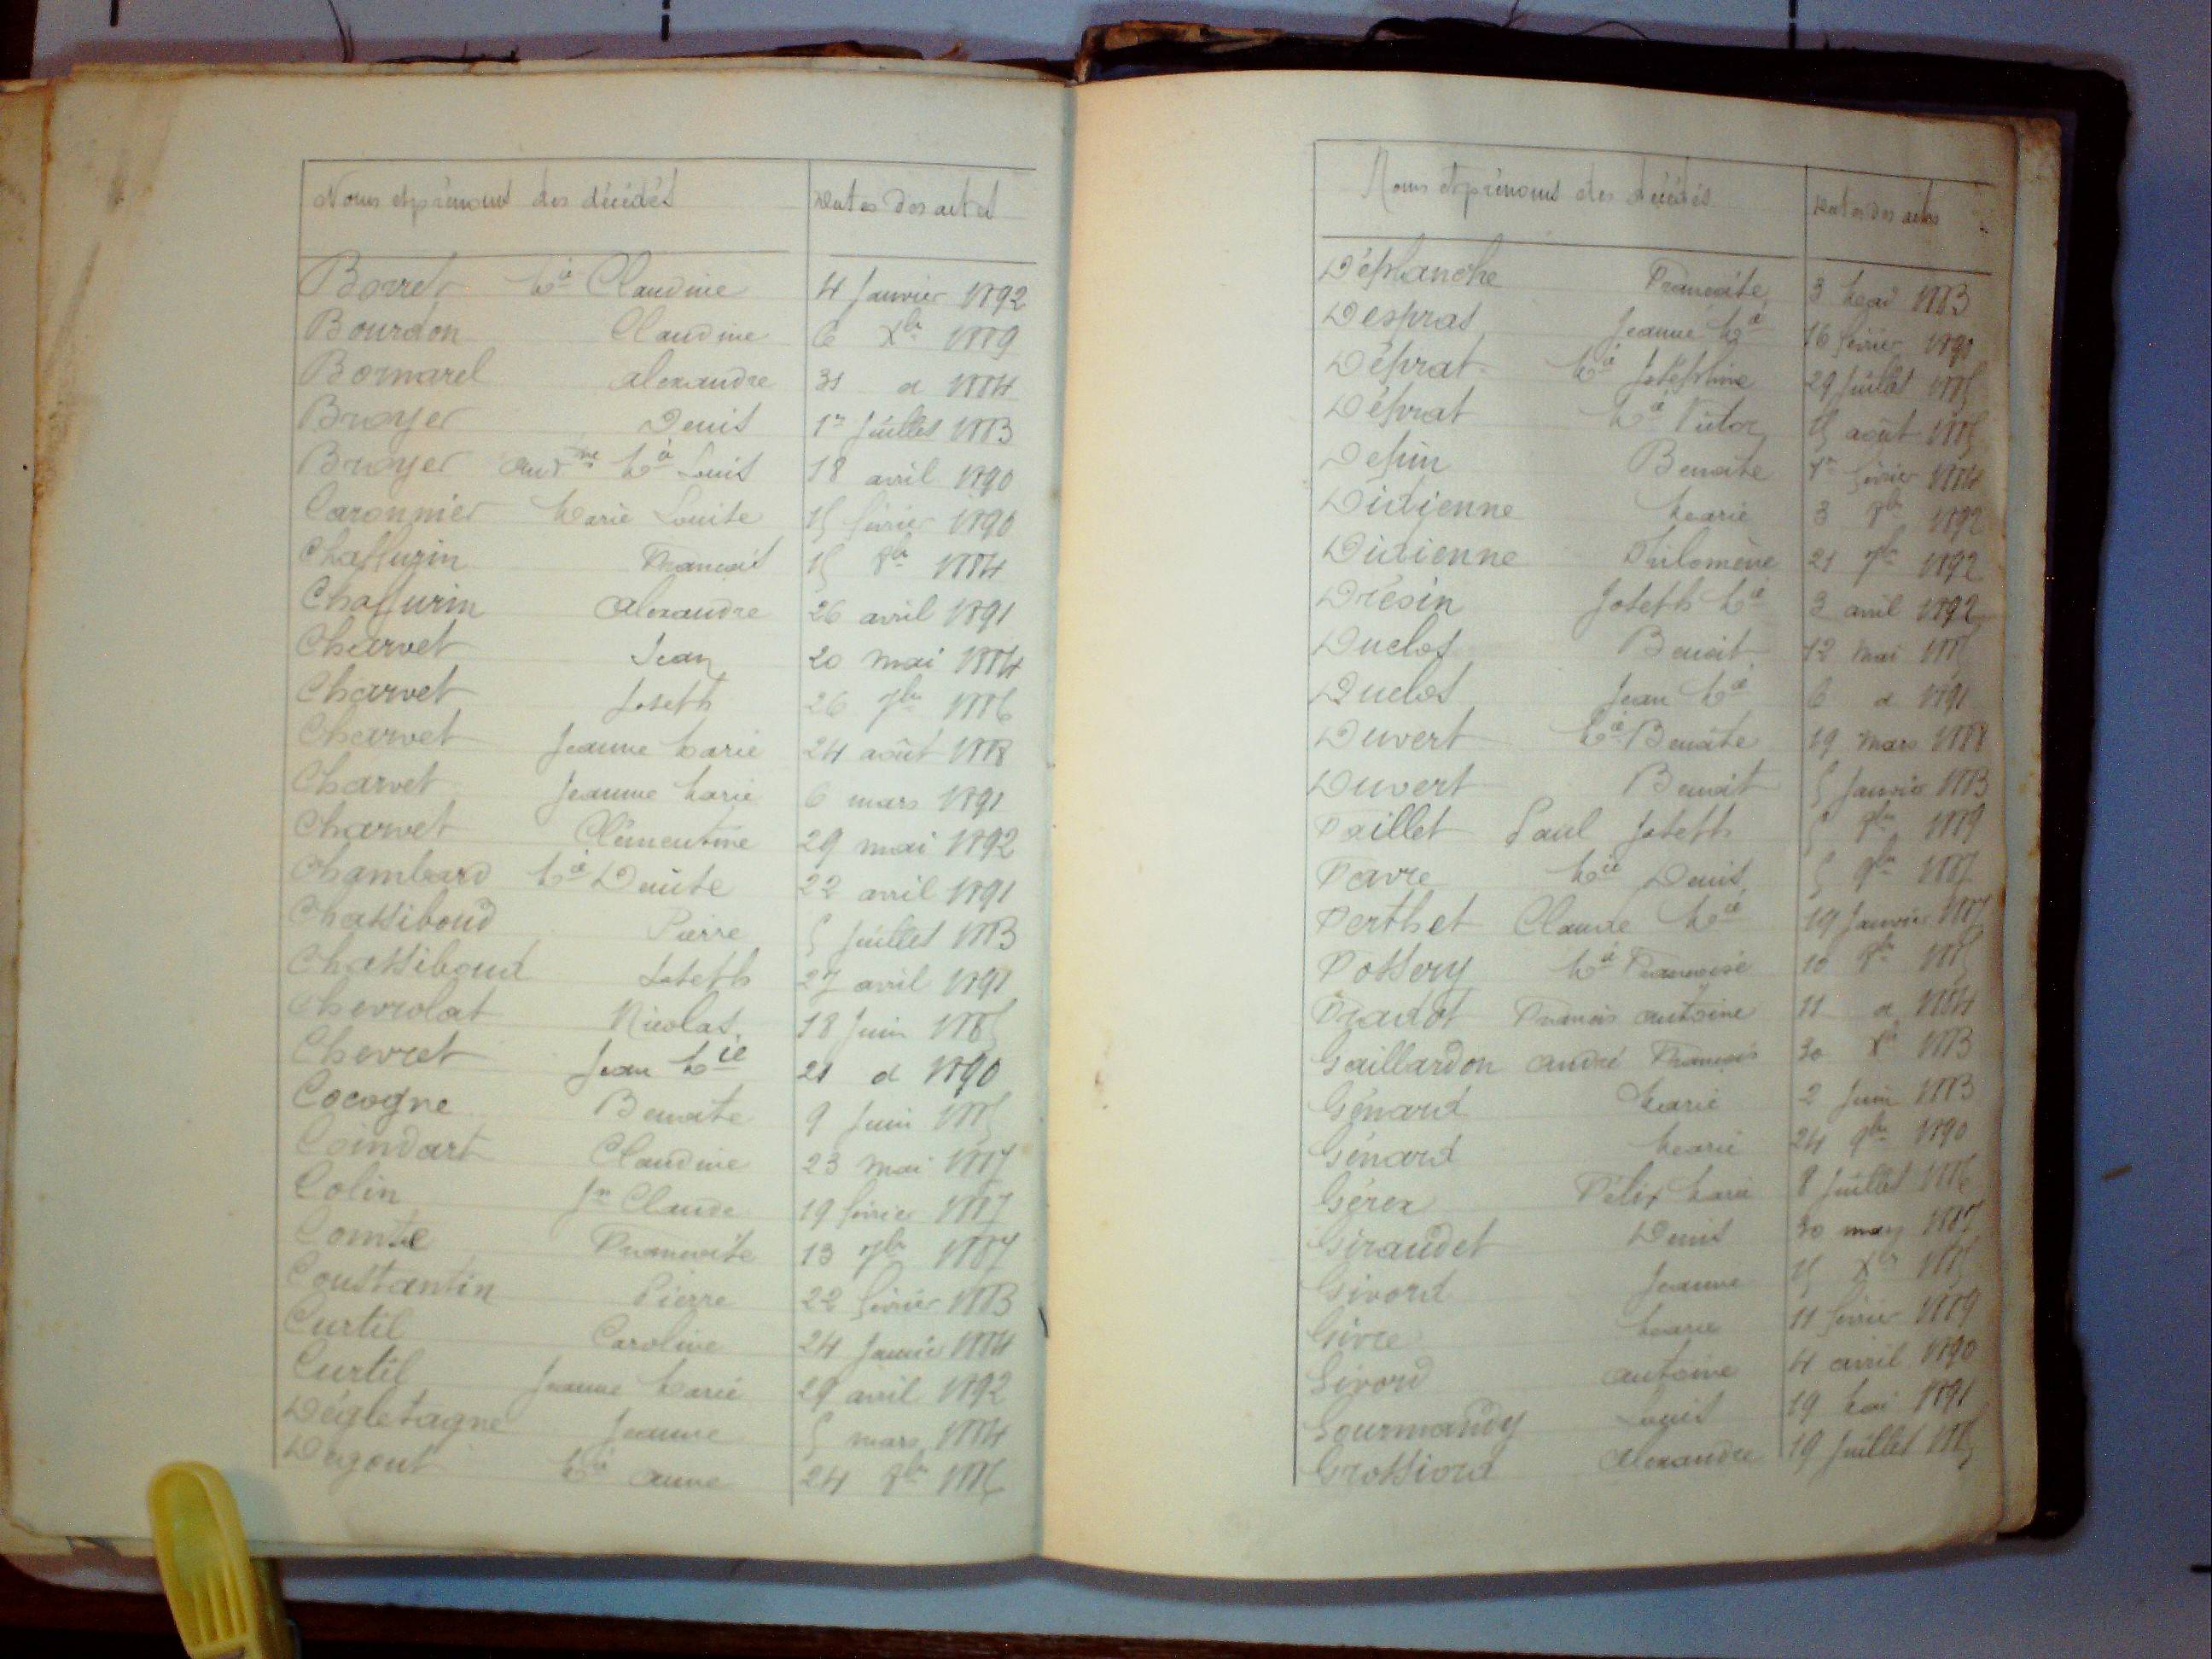 Noms et prénoms des décédés Dates des actes
Borret Mie Claudine 4 Janvier 1892
Bourdon Claudine 6 Xbre 1889
Bornarel Alexandre 31 d 1884
Broyer Denis 1er Juillet 1883
Broyer Mie Louis 18 avril 1890
Caronnier Marie Louise 15 février 1890
Chaffurin François 15 8bre 1884
Chaffurin Alexandre 26 avril 1891
Charvet Jean 20 mai 1884
Charvet Joseph 26 7bre 1886
Charvet Jeanne Marie 24 août 1888
Charvet Jeanne Marie 6 mars 1891
Charvet Clémentine 29 mai 1892
Chambard Mie Denise 22 avril 1891
Chassiboud Pierre 5 Juillet 1883
Chassiboud Joseph 27 avril 1891
Chevrolat Nicolas 18 Juin 1885
Chevret Jean Mie 21 d 1890
Cocogne Benoite 9 Juin 1885
Coindart Claudine 23 mai 1887
Colin Jn Claude 19 février 1887
Comte Françoise 13 7bre 1887
Constantin Pierre 22 février 1883
Curtil Caroline 24 Janvier 1884
Curtil Jeanne Marie 29 avril 1892
Dégletagne Jeanne 5 mars 1884
Dugout Mie Anne 24 8bre 1886
Noms et prénoms des décédés Dates des actes
Déplanche Françoise 3 1883
Despras Jeanne Mie 16 février 1890
Déprat Mie Joséphine 29 Juillet 1885
Déprat Mie Victor 15 août 1885
Depin Benoite 1er février 1884
Didienne Marie 3 8bre 1892
Didienne Philomène 21 7bre 1892
Drésin Joseph Mie 3 avril 1892
Duclos Benoit 12 mai 1885
Duclos Jean Mie 6 d 1891
Duvert Mie Benoite 19 mars 1888
Duvert Benoit 5 Janvier 1883
Faillet Paul Joseph 5 1889
Favre Mie Denis 5 9bre 1887
Ferthet Claude Mie 19 Janvier 1887
Fossery Mie Françoise 10 8bre 1885
Fradot François Antoine 11 d 1884
Gaillardon André François 30 Xbre 1883
Génard Marie 2 Juin 1883
Génard Marie 24 9bre 1890
Gérex Félix Marie 8 Juillet 1886
Giraudet Denis 30 mars 1887
Givord Jeanne 15 Xbre 1885
Givre Marie 11 février 1889
Givord Antoine 4 avril 1890
Gourmandy Louis 19 Mai 1891
Grossiord Alexandre 19 Juillet 1885